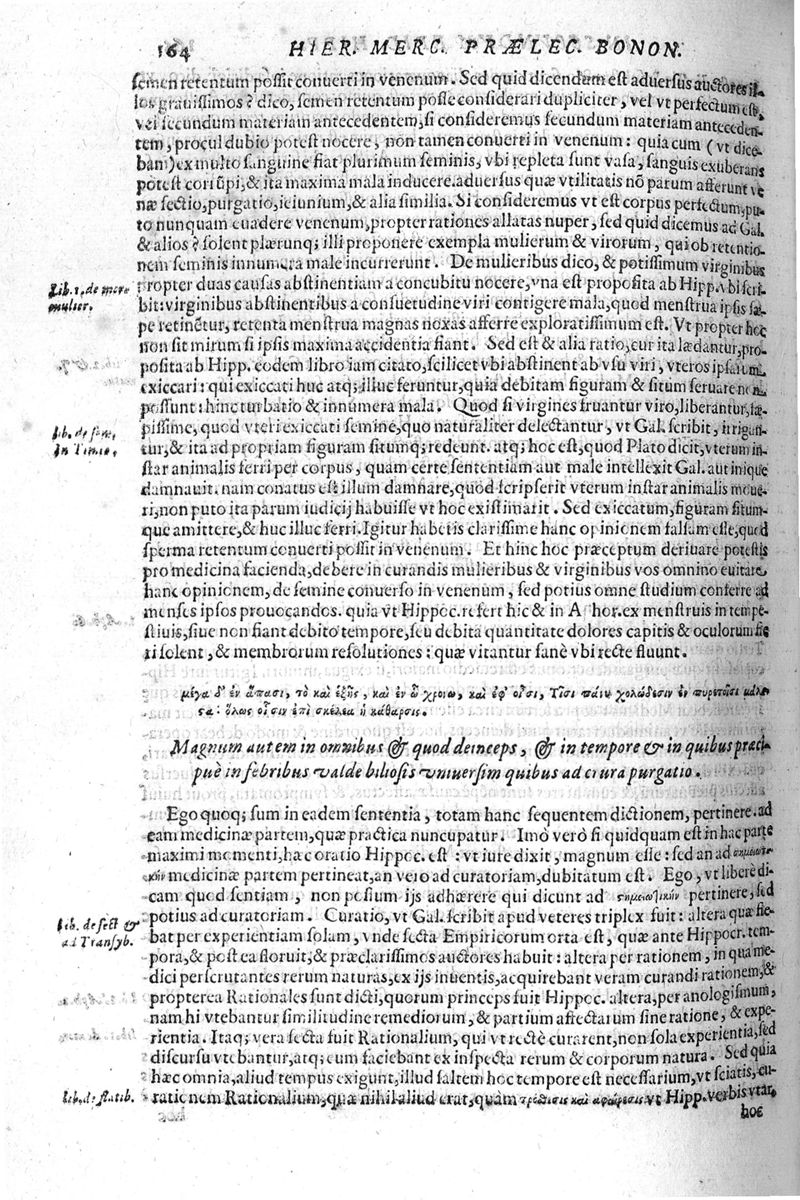 164 HIER. MERC. PRÆLEC. BONON.
semen retentum possit conuerti in venenum. Sed quid dicendum est aduersus auctores il-
los grauissimos? dico, semen retentum posse considerari dupliciter, vel vt perfectum est,
vel secundum materiam antecedentem, si consideremus secundum materiam anteceden-
tem, procul dubio potest nocere, non tamen conuerti in venenum: quia cum (vt dice-
bam) ex multo sanguine fiat plurimum seminis, vbi repleta sunt vasa, sanguis exuberans
potest corrũpi, & ita maxima mala inducere. aduersus quæ vtilitatis nõ parum afferunt ve
næ sectio, purgatio, ieiunium, & alia similia. Si consideremus vt est corpus perfectum, pu-
to nunquam euadere venenum, propter rationes allatas nuper, sed quid dicemus ad Gal.
& alios? solent plærunq; illi proponere exempla mulierum & virorum, qui ob retentio-
nem seminis innumera male incurrerunt. De mulieribus dico, & potissimum virginibus
Lib. 1. de mor. mulier.
propter duas causas abstinentiam a concubitu nocere, vna est proposita ab Hipp. vbi scri-
bit: virginibus abstinentibus a consuetudine viri contigere mala, quod menstrua ipsis sæ-
pe retinētur, retenta menstrua magnas noxas afferre exploratissimum est. Vt propter hoc
non sit mirum si ipsis maxima accidentia fiant. Sed est & alia ratio, cur ita lædantur, pro-
posita ab Hipp. eodem libro iam citato, scilicet vbi abstinent ab vsu viri, vteros ipsarum
exiccari: qui exiccati huc atq; illuc feruntur, quia debitam figuram & situm seruare non
possunt: hinc turbatio & innumera mala. Quod si virgines fruantur viro, liberantur, sæ-
lib. de sem.
In Timæo.
pissime, quod vteri exiccati semine, quo naturaliter delectantur, vt Gal. scribit, irrigan-
tur, & ita ad propriam figuram situmq; redeunt. atq; hoc est, quod Plato dicit, vterum in-
star animalis ferri per corpus, quam certe sententiam aut male intellexit Gal. aut inique
damnauit. nam conatus est illum damnare, quod scripserit vterum instar animalis moue-
ri, non puto ita parum iudicij habuisse vt hoc existimarit. Sed exiccatum, figuram situm-
que amittere, & huc illuc ferri. Igitur habetis clarissime hanc opinionem falsam esse, quod
sperma retentum conuerti possit in venenum. Et hinc hoc præceptum deriuare potestis
pro medicina facienda, debere in curandis mulieribus & virginibus vos omnino euitare
hanc opinionem, de semine conuerso in venenum, sed potius omne studium conferre ad
menses ipsos prouocandos. quia vt Hippoc. refert hic & in A hor. ex menstruis in tempe-
stiuis, siue non fiant debito tempore, seu debita quantitate dolores capitis & oculorum fie
ri solent, & membrorum resolutiones: quæ vitantur sanè vbi recte fluunt.
μέγα δ' ἐν ἅπασι, τὸ καὶ ἑξῆς, καὶ ἐν ᾧ χρόνῳ, καὶ ἐφ' οἷσι, τοῖσι πάνυ χολώδεσιν ἐν πυρετοῖσι μάλι-
στα: ὅλως οἷσιν ἐπὶ σκέλεα ἡ κάθαρσις.
Magnum autem in omnibus & quod deinceps, & in tempore & in quibus præci-
puè in febribus valde biliosis vniuersim quibus ad crura purgatio.
Ego quoq; sum in eadem sententia, totam hanc sequentem dictionem, pertinere. ad
eam medicinæ partem, quæ practica nuncupatur. Imò verò si quidquam est in hac parte
maximi momenti, hæc oratio Hippoc. est: vt iure dixit, magnum esse: sed an ad σημειωτι-
κὴν medicinæ partem pertineat, an vero ad curatoriam, dubitatum est. Ego, vt libere di-
cam quod sentiam, non possum ijs adhærere qui dicunt ad σημειωτικὴν pertinere, sed
potius ad curatoriam. Curatio, vt Gal. scribit apud veteres triplex fuit: altera quæ fie-
Lib. de sect &
ad Transyb.
bat per experientiam solam, vnde secta Empiricorum orta est, quæ ante Hippocr. tem-
pora, & post ea floruit, & præclarissimos auctores habuit: altera per rationem, in qua me-
dici perscrutantes rerum naturas, ex ijs inuentis, acquirebant veram curandi rationem, &
propterea Rationales sunt dicti, quorum princeps fuit Hippoc. altera, per anologismum,
nam hi vtebantur similitudine remediorum, & partium affectarum sine ratione, & expe-
rientia. Itaq; vera secta fuit Rationalium, qui vt rectè curarent, non sola experientia, sed
discursu vtebantur, atq; eum faciebant ex inspecta rerum & corporum natura. Sed quia
hæc omnia, aliud tempus exigunt, illud saltem hoc tempore est necessarium, vt sciatis, cu-
lib. de flatib.
rationem Rationalium, quæ nihil aliud erat, quàm πρόσθεσις καὶ ἀφαίρεσις vt Hipp. verbis vtar,
hoc